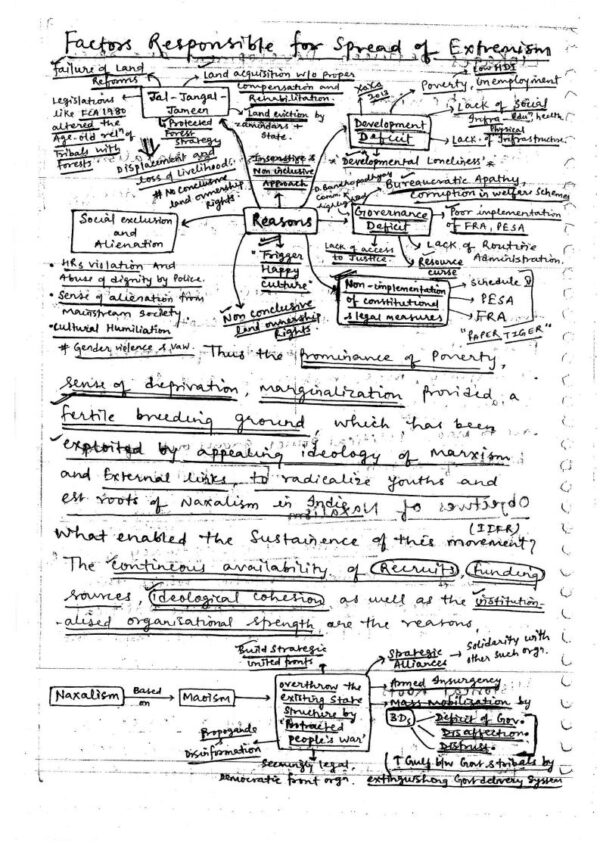 Factors Responsible for Spread of Extremism
Failure of Land
Reforms
Land acquisition w/o proper
compensation and
Rehabilitation.
Land eviction by
zamindars +
State.
Jal-Jangal-
Jameen
Protected
Forest
Strategy
Legislations
like FCA 1980
altered the
Age-old relⁿ of
Tribals with
Forests
Displacement and
loss of livelihood.
# No conclusive
land ownership
Rights.
Insensitive &
Non inclusive
Approach
XaXa
2013
Low HDI
Poverty, Unemployment
Development
Deficit
Lack of Social
Infra- Eduⁿ, health
Physical
Lack of Infrastructure
"Developmental Loneliness"
Social exclusion
and
Alienation
Reasons
Governance
Deficit
Bureaucratic Apathy,
corruption in welfare schemes
Poor implementation
of FRA, PESA
Lack of Routine
Administration.
Resource
curse
Lack of access
to Justice.
"Trigger
Happy
culture"
Non conclusive
land ownership
Rights
Non-implementation
of constitutional
& legal measures
Schedule V
PESA
FRA
"PAPER TIGER"
• HRs violation And
Abuse of dignity by Police.
• Sense of alienation from
Mainstream society.
• Cultural Humiliation
# Gender violence & VAW.
Thus the prominance of Poverty,
sense of deprivation, marginalization provided a
fertile breeding ground, which has been
exploited by appealing ideology of marxism
and External links, to radicalize youths and
est roots of Naxalism in India
What enabled the Sustainence of this movement?
(IIFR)
The continuous availability of Recruits, funding
sources, ideological cohesion as well as the institution-
alised organisational strength are the reasons
Build Strategic
united fronts
Strategic
Alliances
Solidarity with
other such orgⁿ.
Naxalism
Based
on
Maoism
overthrow the
existing State
Structure by
"Protracted
people's war"
Armed Insurgency
Mass Mobilization by
3Ds
Deficit of Gov.
Disaffection.
Distrust.
Propoganda
Disinformation
Seemingly legal
Democratic front orgⁿ.
↑ Gulf b/w Govt. & tribals by
extinguishing Govt delivery System